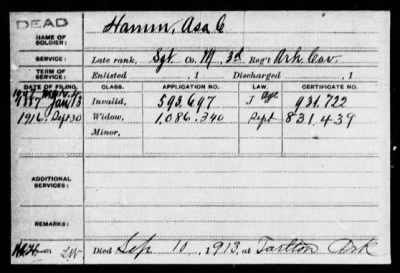 DEAD
NAME OF SOLDIER: Hamm, Asa C
SERVICE: Late rank, Sgt Co. M, 3d Reg't Ark Cav.
TERM OF SERVICE: Enlisted , 1 Discharged , 1
DATE OF FILING. CLASS. APPLICATION NO. LAW. CERTIFICATE NO.
1887 Jan 13 Invalid, 593.697 J Age 931.722
1916 Sept 30 Widow, 1.086.340 Sept 831.439
Minor,
ADDITIONAL SERVICES:
REMARKS:
Died Sep 10, 1913, at Tarlton Ark